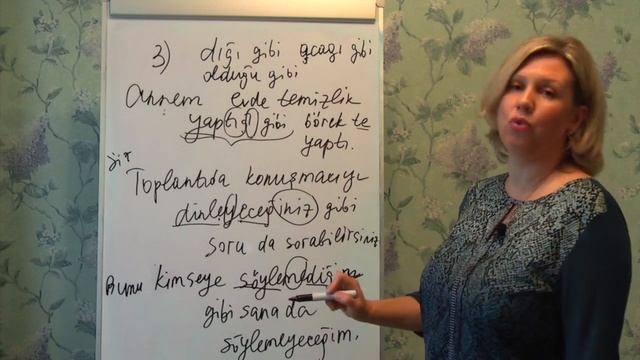 3) dığı gibi acağı gibi
olduğu gibi
Annem evde temizlik
yaptığı gibi börek te
yaptı.
Toplantıda konuşmacıyı
dinleyeceğiniz gibi
soru da sorabilirsiniz
Bunu kimseye söylemediğim
gibi sana da
söylemeyeceğim.